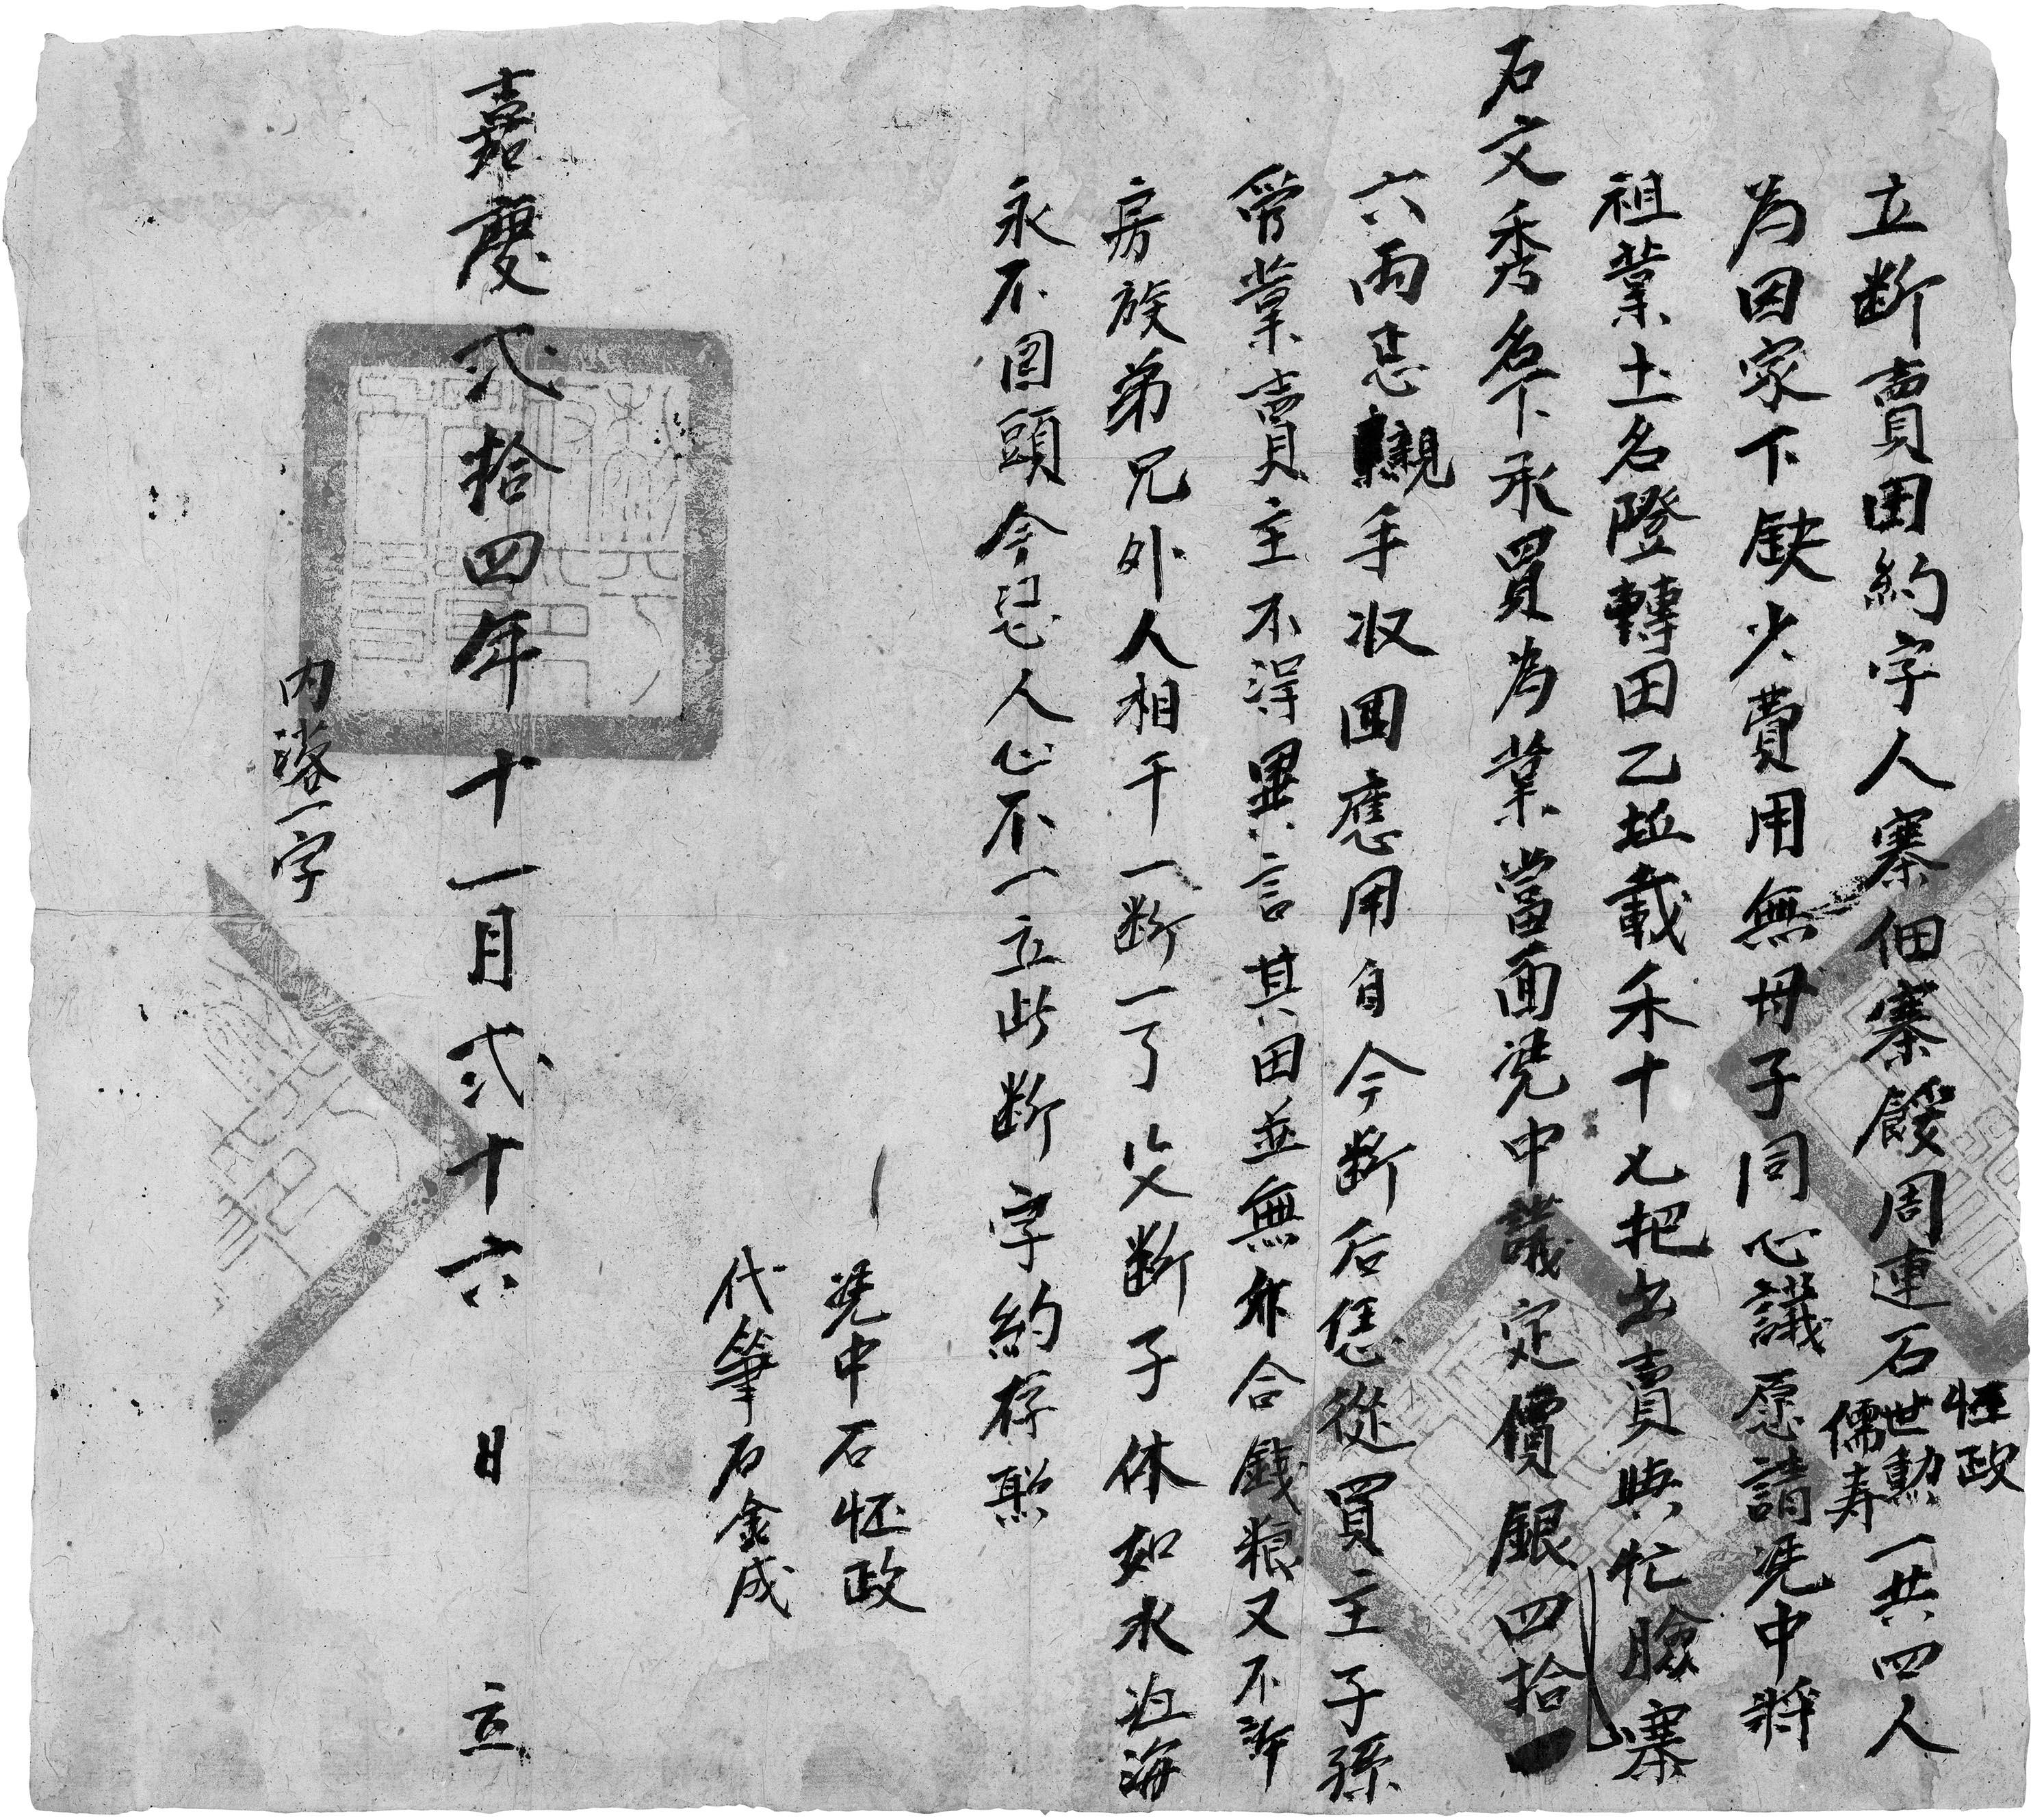 立断賣田約字人寨佃寨餒周連石恠政世勲儒寿一共四人
為因家下缺少費用無毋子同心議愿請凴中將
祖業土名隥轉田乙坵載禾十七把出賣與忙臉寨
石文秀名下承買為業當面凴中議定價銀四拾
六兩忢親手收回應用自今断后恁從買主子孫
管業賣主不得異言其田並無合錢粮又不許
房族弟兄外人相干一断一了父断子休如水流海
永不回頭今恐人心不一立此断字約存照
凴中石恠政
代筆石金成
嘉慶弍拾四年十一月弍十六日立
内落一字